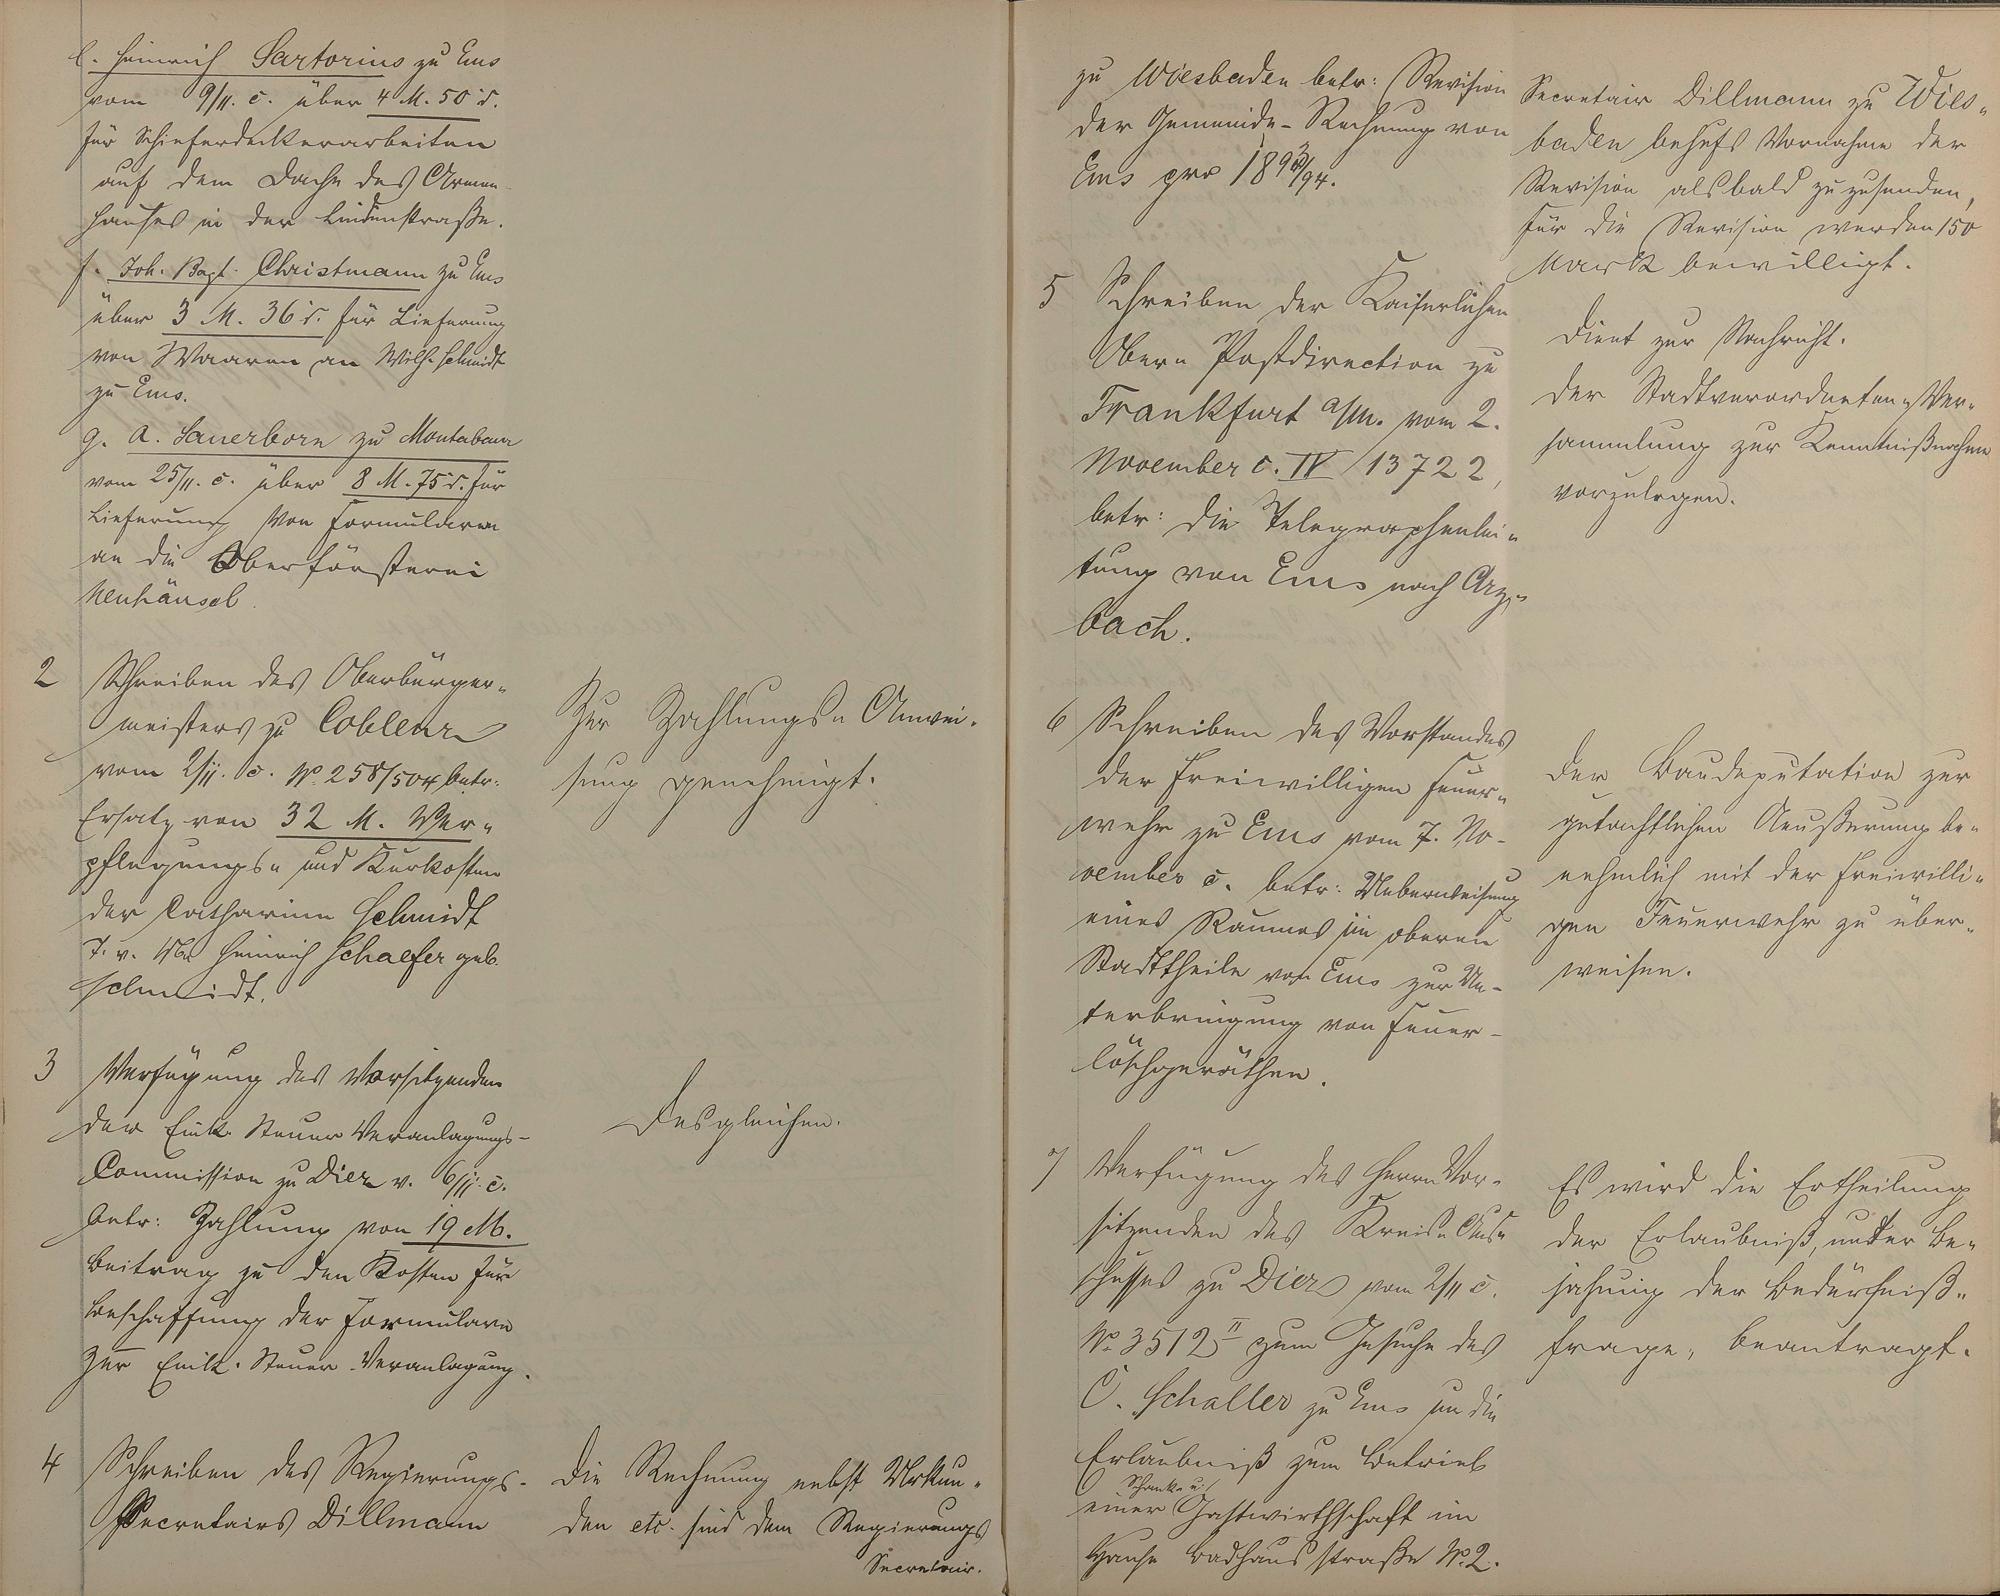 e. Heinrich Sartorius zu Ems
vom 9/11. c. über 4 M. 50 d.
für Schieferdeckerarbeiten
auf dem Dache des Armen-
hauses in der Lindenstraße.
f. Joh. Bapt. Christmann zu Ems
über 3 M. 36 d. für Lieferung
von Waaren an Wilh. Schmidt
zu Ems.
g. A. Sauerborn zu Montabaur
vom 25/11. c. über 8 M. 75 d. für
Lieferung von Formularen
an die Oberförsterei
Neuhäusel.
2 Schreiben des Oberbürger-
meisters zu Coblenz
vom 2/11. c. No. 258/504 betr.
Ersatz von 32 M. Ver-
pflegungs- und Kurkosten
der Catharina Schmidt
T. v. Heinrich Schaefer geb.
Schmidt.
Zur Zahlungs-Anwei-
sung genehmigt.
3 Verfügung des Vorsitzenden
der Eink. Steuer Veranlagungs-
Commission zu Diez v. 6/11. c.
betr: Zahlung von 19 M.
Beitrag zu den Kosten für
Beschaffung der Formulare
zur Eink. Steuer-Veranlagung.
Desgleichen.
4 Schreiben des Regierungs-
Secretairs Dillmann
Die Rechnung nebst Urkun-
den etc. sind dem Regierungs
Secretair.
zu Wiesbaden betr: Revision
der Gemeinde-Rechnung von
Ems pro 1893/94.
Secretair Dillmann zu Wies-
baden behufs Vornahme der
Revision alsbald zuzusenden,
für die Revision werden 150
Mark bewilligt.
5 Schreiben der Kaiserlichen
Ober-Postdirection zu
Frankfurt a/M. vom 2.
November c. IV/13722,
betr: die Telegraphenlei-
tung von Ems nach Arz-
bach.
Dient zur Nachricht.
Der Stadtverordneten-Ver-
sammlung zur Kenntnißnahme
vorzulegen.
6 Schreiben des Vorstandes
der freiwilligen Feuer-
wehr zu Ems vom 7. No-
vember c. betr: Ueberweisung
eines Raumes im oberen
Stadttheile von Ems zur Un-
terbringung von Feuer-
löschgeräthen.
Der Baudeputation zur
gutachtlichen Aeußerung be-
nehmlich mit der freiwilli-
gen Feuerwehr zu über-
weisen.
7 Verfügung des Herrn Vor-
sitzenden des Kreis-Aus-
schusses zu Diez vom 2/11 c.
No. 3512 II zum Gesuche des
C. Schaller zu Ems um die
Erlaubniß zum Betrieb
Schank- u.
einer Gastwirthschaft im
Hause Badhausstraße No. 2.
Es wird die Ertheilung
der Erlaubniß, unter Be-
jahung der Bedürfniß-
frage, beantragt.